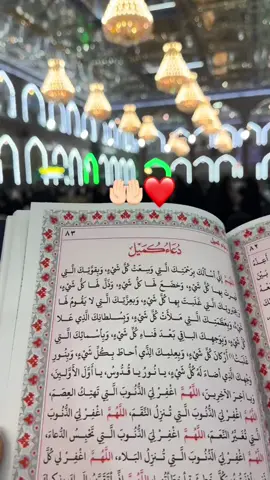 ٨٣
دُعَاءُ كُمَيْل
اَللّٰهُمَّ اِنّي اَسْاَلُكَ بِرَحْمَتِكَ الَّتي وَسِعَتْ كُلَّ شَيْءٍ، وَبِقُوَّتِكَ الَّتي
قَهَرْتَ بِها كُلَّ شَيْءٍ، وَخَضَعَ لَها كُلُّ شَيْءٍ، وَذَلَّ لَها كُلُّ شَيْءٍ،
وَبِجَبَرُوتِكَ الَّتي غَلَبْتَ بِها كُلَّ شَيْءٍ، وَبِعِزَّتِكَ الَّتي لا يَقُومُ لَها
شَيْءٌ، وَبِعَظَمَتِكَ الَّتي مَلَأَتْ كُلَّ شَيْءٍ، وَبِسُلْطانِكَ الَّذي عَلا
كُلَّ شَيْءٍ، وَبِوَجْهِكَ الْباقي بَعْدَ فَناءِ كُلِّ شَيْءٍ، وَبِأَسْمائِكَ الَّتي
مَلَأَتْ اَرْكانَ كُلِّ شَيْءٍ، وَبِعِلْمِكَ الَّذي اَحاطَ بِكُلِّ شَيْءٍ، وَبِنُورِ
وَجْهِكَ الَّذي اَضاءَ لَهُ كُلُّ شَيْءٍ، يا نُورُ يا قُدُّوسُ، يا اَوَّلَ الْاَوَّلينَ،
وَيا آخِرَ الْآخِرينَ، اَللّٰهُمَّ اغْفِرْ لِيَ الذُّنُوبَ الَّتي تَهْتِكُ الْعِصَمَ،
اَللّٰهُمَّ اغْفِرْ لِيَ الذُّنُوبَ الَّتي تُنْزِلُ النِّقَمَ، اَللّٰهُمَّ اغْفِرْ لِيَ الذُّنُوبَ
الَّتي تُغَيِّرُ النِّعَمَ، اَللّٰهُمَّ اغْفِرْ لِيَ الذُّنُوبَ الَّتي تَحْبِسُ الدُّعاءَ،
اَللّٰهُمَّ اغْفِرْ لِيَ الذُّنُوبَ الَّتي تُنْزِلُ الْبَلاءَ، اَللّٰهُمَّ اغْفِرْ لي كُلَّ